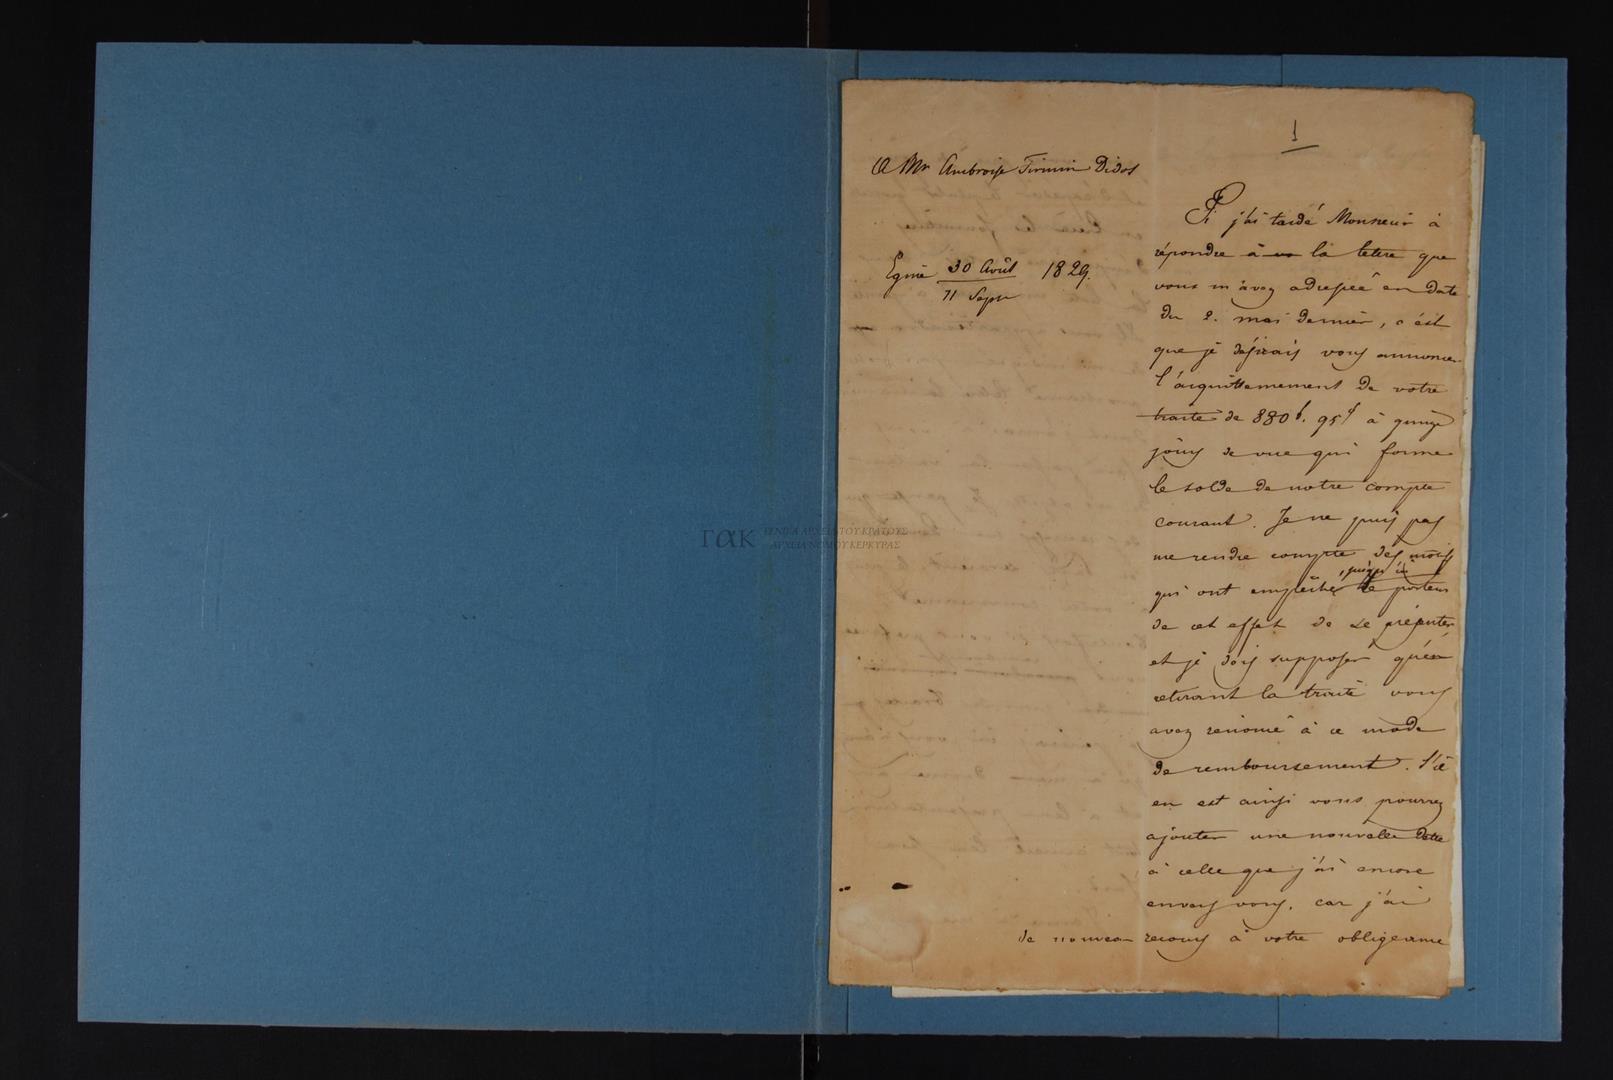 1
A Mr Ambroise Firmin Didot
Egine 30 Août 1829.
11 Sepre
Si j'ai tardé Monsieur à
répondre à vo la lettre que
vous m'avez adressée en date
du 2. mai dernier, c'est
que je désirais vous annoncer
l'acquittemement de votre
traite de 880 f. 95 à quinze
jours de vue qui forme
le solde de notre compte
courant. Je ne puis pas
me rendre compte des motifs
jusqu'ici
qui ont empêcher le porteur
de cet effet de se présenter,
et je dois supposer qu'en
retirant la traite vous
avez renoncé à ce mode
de remboursement. S'il
en est ainsi vous pourrez
ajouter une nouvelle dette
à celle que j'ai encore
envers vous. car j'ai
de nouveau recours à votre obligeance
ΓΑΚ ΓΕΝΙΚΑ ΑΡΧΕΙΑ ΤΟΥ ΚΡΑΤΟΥΣ
ΑΡΧΕΙΑ ΝΟΜΟΥ ΚΕΡΚΥΡΑΣ